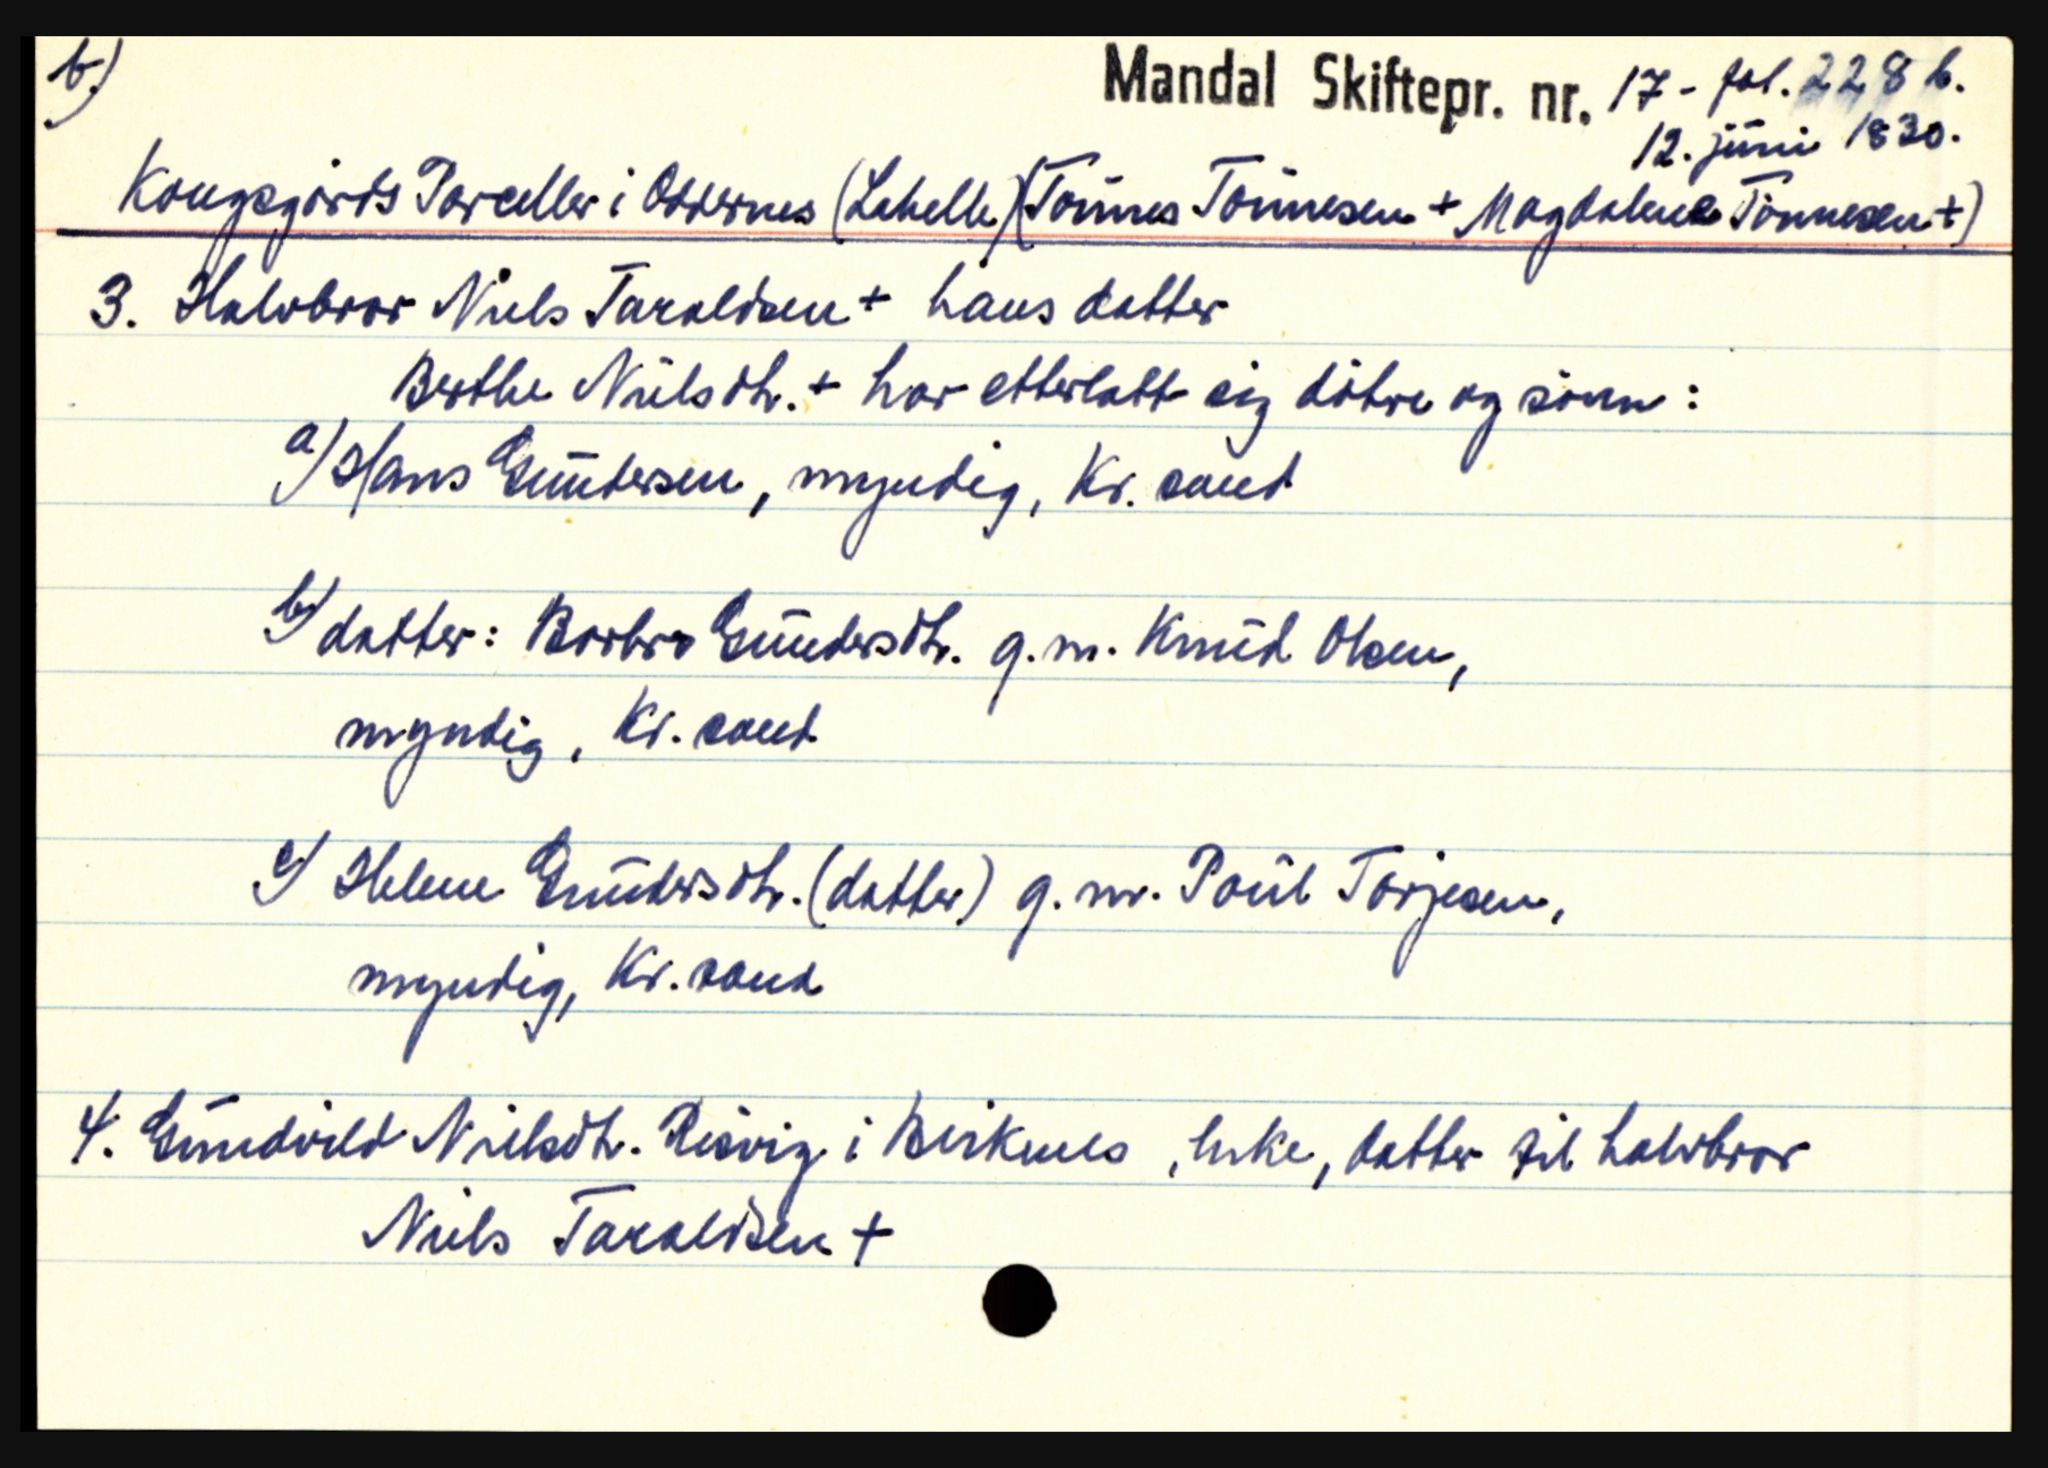 b)
Mandal Skiftepr. nr. 17 - fol. 228 b.
12. juni 1830.
Kongsgårds Parceller i Oddernes (Lahelle) (Tønnes Tønnesen + Magdalene Tønnesen +)
3. Halvbror Niels Taraldsen + hans datter
Berthe Nielsdtr. + har etterlatt sig døtre og sønn :
a) Hans Gundersen, myndig, Kr. sand
b) datter: Barbro Gundersdtr. g. m. Knud Olsen,
myndig, Kr. sand
c) Helene Gundersdtr. (datter) g. m. Poul Torjesen,
myndig, Kr. sand
4. Gundvild Nielsdtr. Risvig i Birkenes , enke, datter til halvbror
Niels Taraldsen +